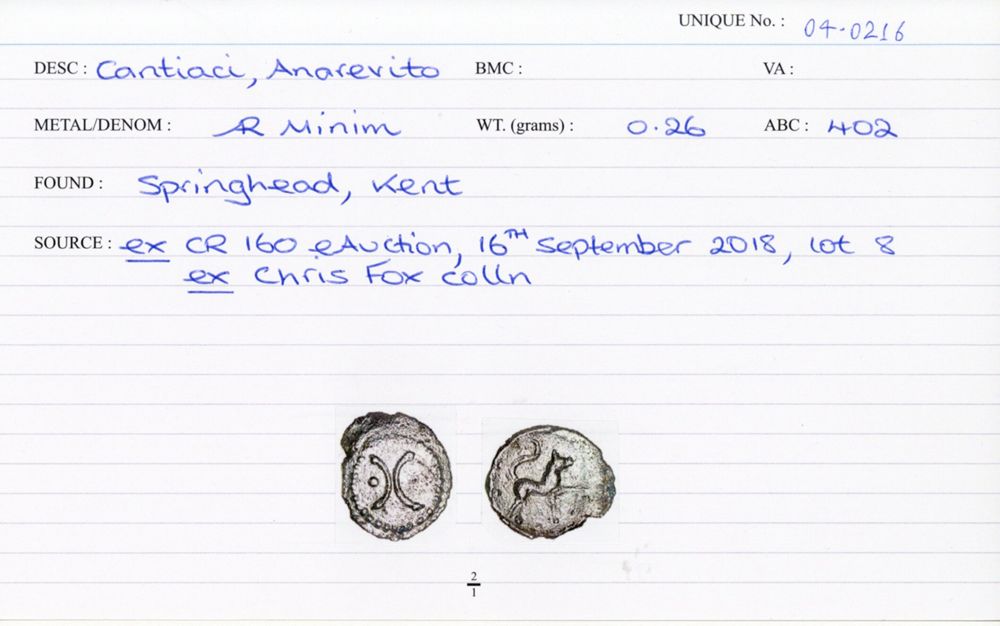 UNIQUE No. : 04-0216
DESC : Cantiaci, Anarevito BMC : VA :
METAL/DENOM : AR Minim WT. (grams) : 0.26 ABC : 402
FOUND : Springhead, Kent
SOURCE : ex CR 160 eAuction, 16TH September 2018, lot 8
ex Chris Fox colln
2
1